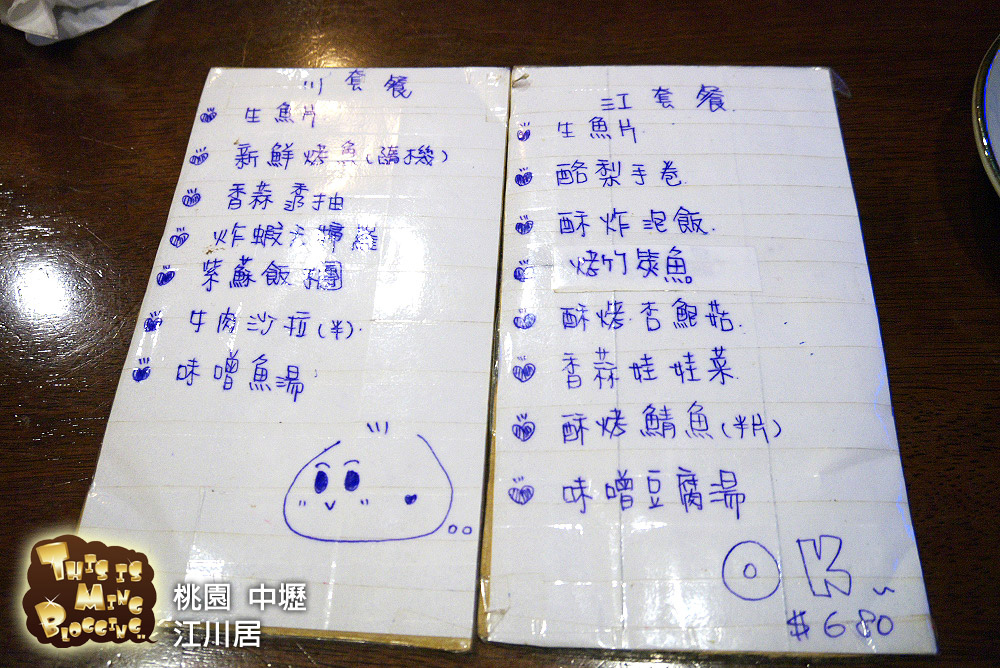 川套餐
生魚片
新鮮烤魚(隨機)
香蒜透抽
炸蝦天婦羅
紫蘇飯糰
牛肉沙拉(半)
味噌魚湯
江套餐
生魚片
酪梨手卷
酥炸泡飯
烤竹筴魚
酥烤杏鮑菇
香蒜娃娃菜
酥烤鯖魚(半片)
味噌豆腐湯
OK~
$680
THIS IS
MING
BLOGGING...
桃園 中壢
江川居